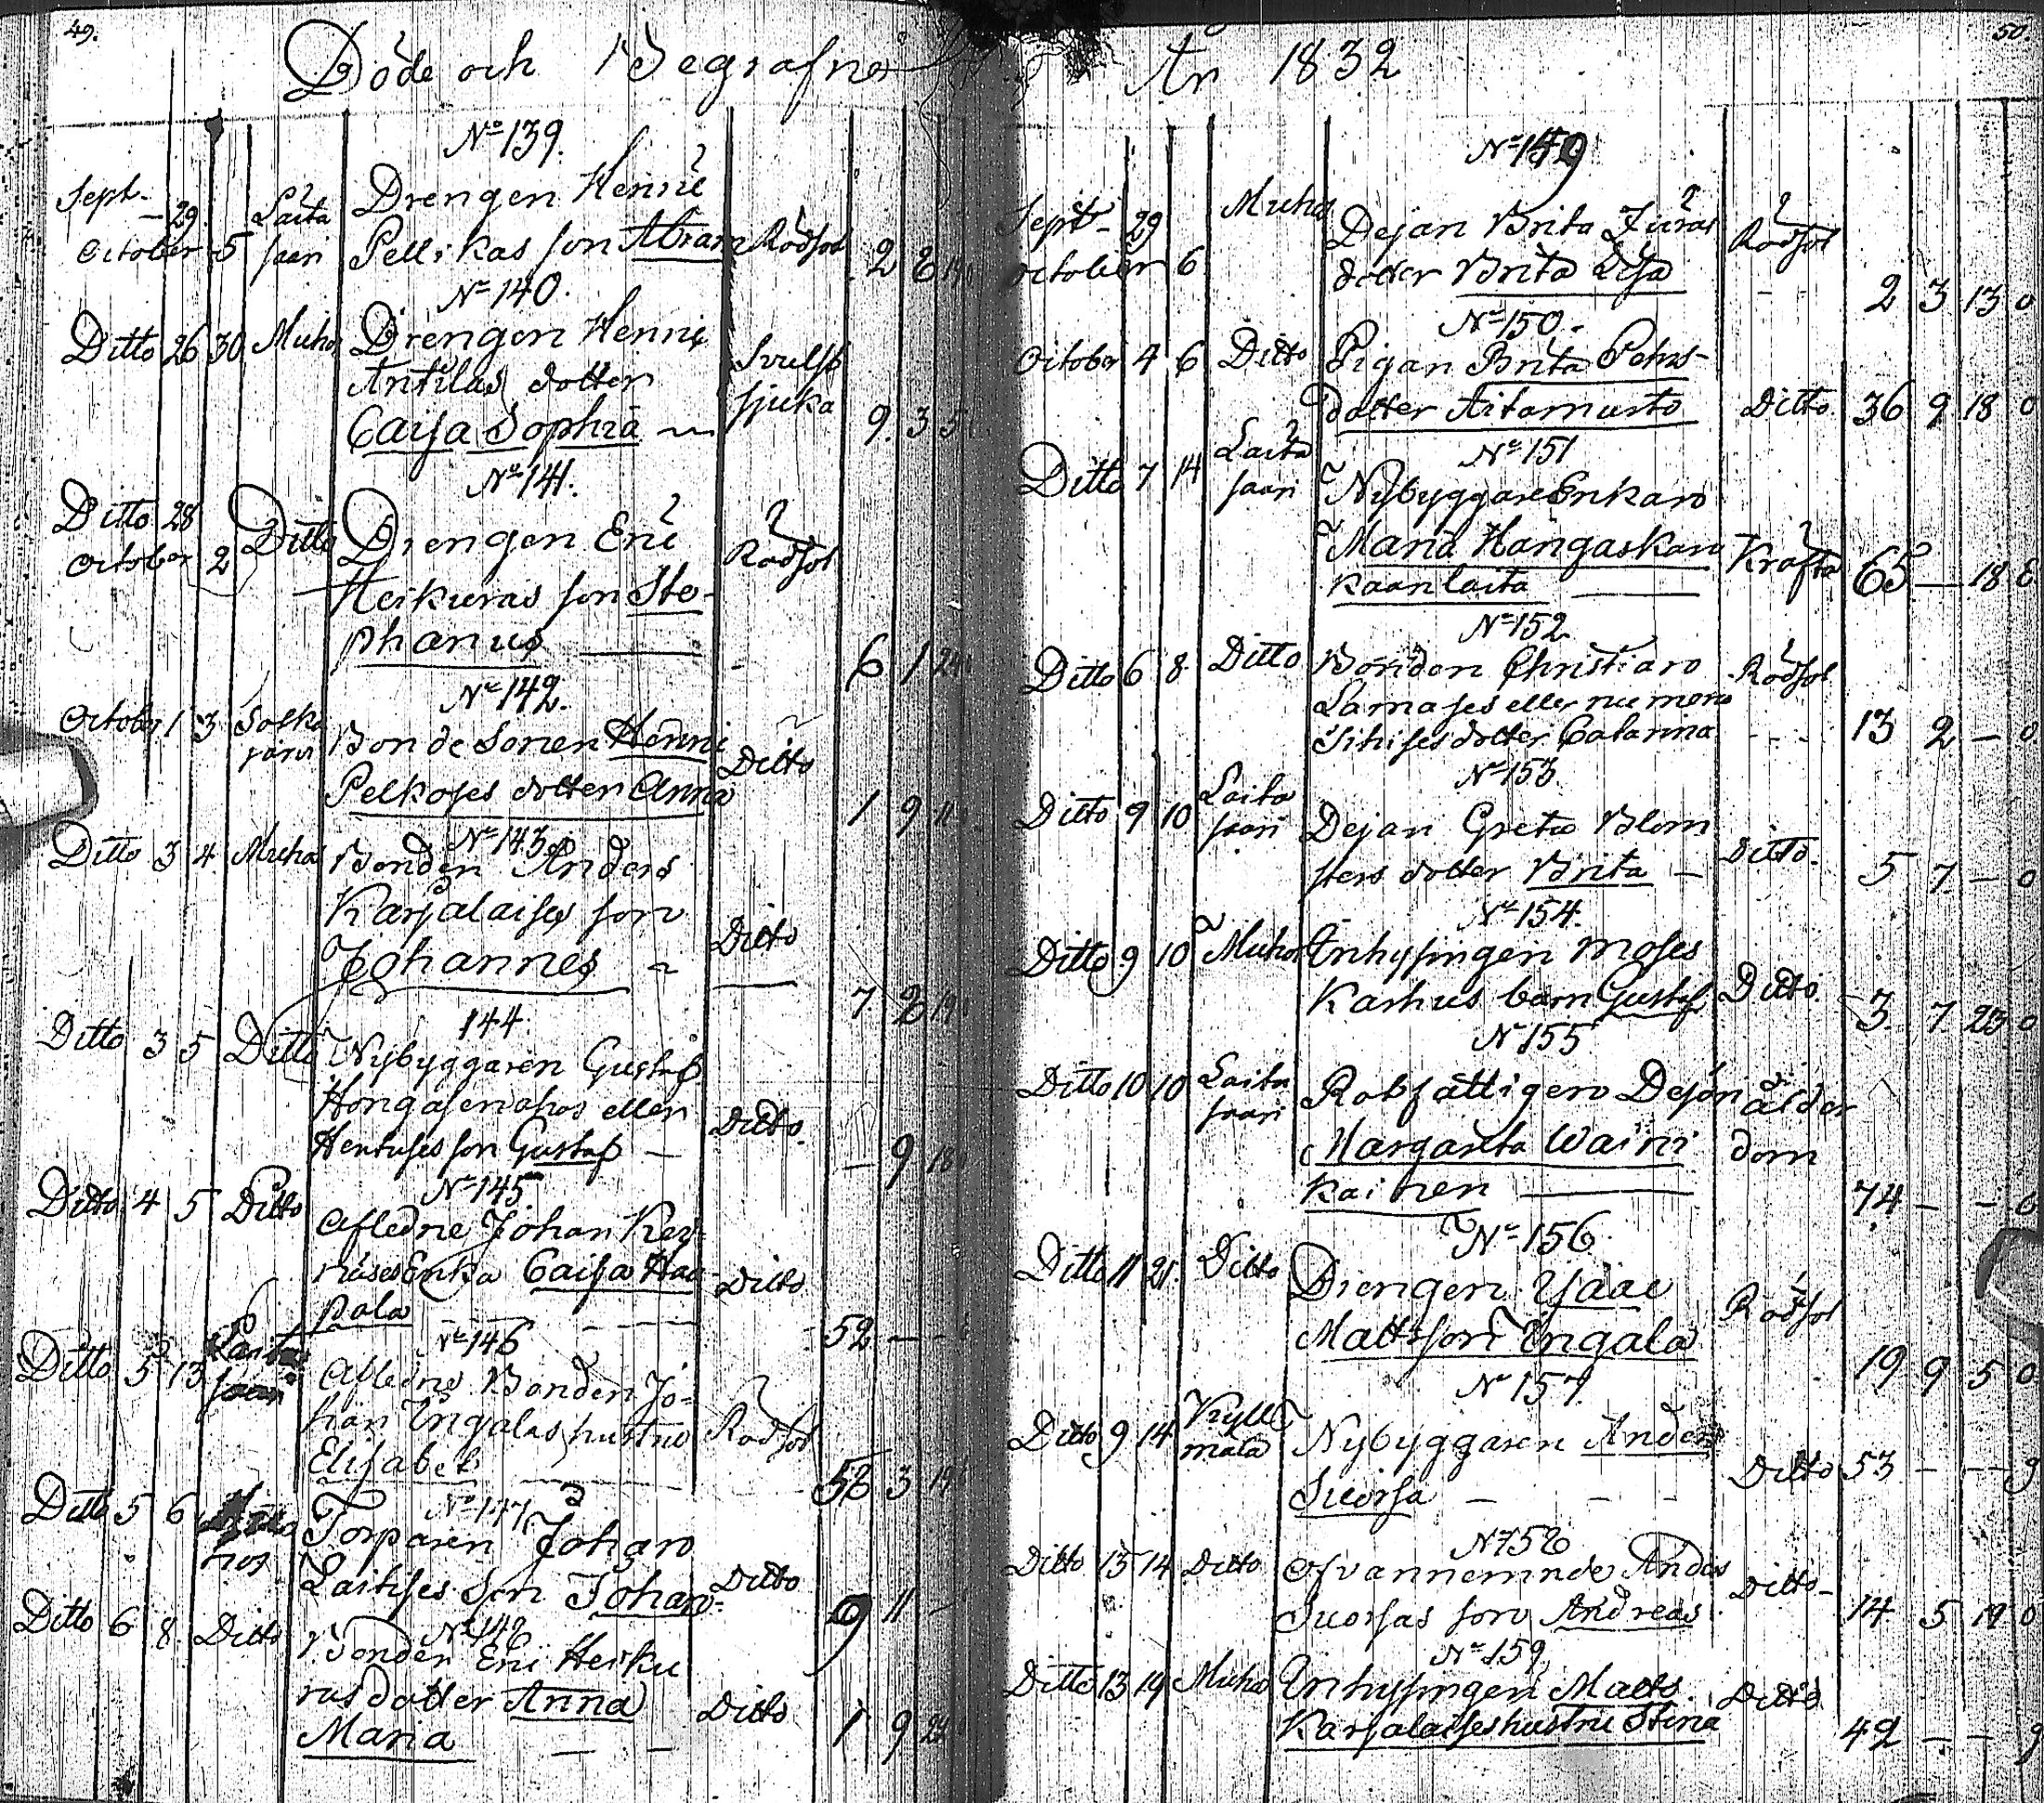 49.
Döde och Begrafne
No 139.
Sept. - 29 October 5 Laita saari Drengen Henric
Pellikas son Abram Rödsot 2 2
No 140.
Ditto 26 30 Muhos Drengen Henric
Antilas dotter Svulst
Caisa Sophia sjuka 9. 3 5
No 141.
Ditto 28 October 2 Ditto Drengen Eric Rödsot
Heikuras son Ste-
phanus 6 1 24
No 142.
October 1 3 Sotka Bonde Sonen Henric
Pelkoses dotter Anna Ditto 1 9 11
No 143.
Ditto 3 4 Muhos Bonden Anders
Karjalaises son
Johannes Ditto 7 2 19
144
Ditto 3 5 Ditto Nybyggaren Gustaf
eller Ditto
son Gustaf - 9 18
No 145
Ditto 4 5 Ditto Afledne Johan
Enka Caisa Haa- Ditto
pala 52 - -
No 146
Ditto 5 13 Laita saari Afledne Bonden Jo-
han Ingalas hustru Rödsot
Elisabet 52 3 19
No 147
Ditto 5 6 Torparen Johan
Laitises Son Johan. Ditto 9 11 -
No 148
Ditto 6 8 Ditto Bonden Eric Heiku
ras dotter Anna Ditto
Maria 1 9
50.
År 1832
No 149
Sept - 29 October 6 Muhos Dejan Brita Juras Rödsot
dotter Brita Lisa 2 3 13 0
No 150.
October 4 6 Ditto Pigan Brita Pehrs-
dotter Aitamurto Ditto 36 9 18 0
No 151
Ditto 7 14 Laita saari Nybyggare Enkan
Maria Hangaskan Kräfta 65 - 18
kaanlaita
No 152
Ditto 6 8 Ditto Bonden Christian Rödsot
Lamases eller nu mera
dotter Catarina 13 2 - 0
No 153
Ditto 9 10 Laita saari Dejan Greta Blom
sters dotter Brita - Ditto 5 7 - 0
No 154.
Ditto 9 10 Muhos Inhysingen Moses
Karhus barn Gustaf Ditto 3 7 23 0
No 155
Ditto 10 10 Laita saari Rotfattigen Dejan ålder
Margareta Waini dom
kainen 74 - - 0
No 156.
Ditto 11 21 Ditto Drengen Isaac
Mattsson Ingala Rödsot 19 9 5 0
No 157.
Ditto 9 14 Kyll mälä Nybyggaren Anders
Suorsa Ditto 53 - - 9
No 158
Ditto 13 14 Ditto Ofvannemnde Anders
Suorsas son Andreas Ditto 14 5 19 0
No 159
Ditto 13 19 Muhos Inhysingen Matts Ditto
Karjalaises hustru Stina 42 - - 9